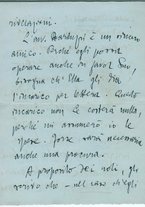 rivelazioni.
L'avv. Bardanzi è un ottimo
amico. Perché egli possa
operare anche in favor Suo,
bisogna ch'Ella gli dia
l'incarico per lettera. Questo
incarico non Le costerà nulla,
perché mi assumerò io le
spese. Forse sarà necessaria
anche una procura.
A proposito dei voli, gli
scrivo che - nel caso ch'egli